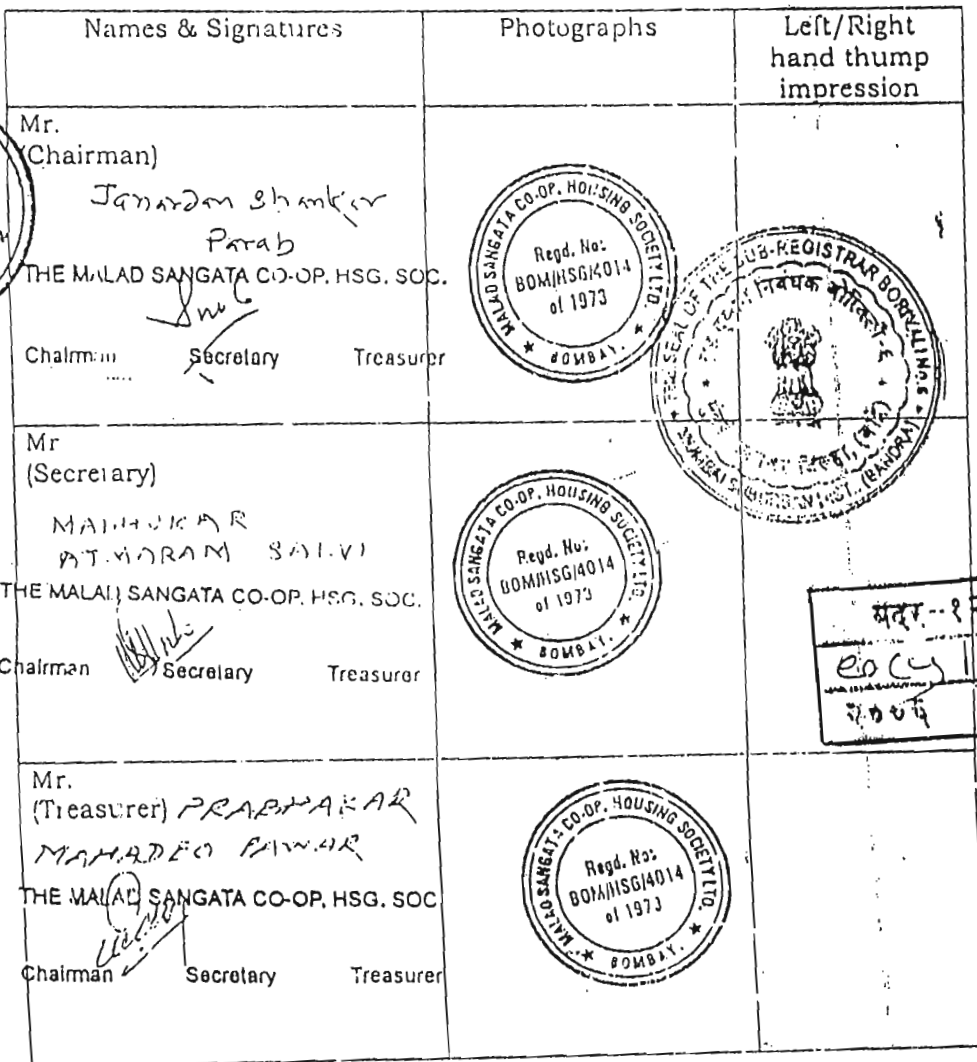 Names & Signatures
Photographs
Left/Right
hand thump
impression
Mr.
(Chairman)
Janardan Shankar
Parab
THE MALAD SANGATA CO-OP. HSG. SOC.
Chairman Secretary Treasurer
MALAD SANGATA CO-OP. HOUSING SOCIETY LTD.
Regd. No:
BOM/HSG/4014
of 1973
★ BOMBAY. ★
THE SEAL OF THE SUB-REGISTRAR BORIVALI No. 6
निबंधक
SUBURBAN DIST. (BANDRA)
Mr
(Secretary)
MADHUKAR
ATMARAM SALVI
THE MALAD SANGATA CO-OP. HSG. SOC.
Chairman Secretary Treasurer
MALAD SANGATA CO-OP. HOUSING SOCIETY LTD.
Regd. No:
BOM/HSG/4014
of 1973
★ BOMBAY. ★
Mr.
(Treasurer) PRABHAKAR
MAHADEO PAWAR
THE MALAD SANGATA CO-OP. HSG. SOC
Chairman Secretary Treasurer
MALAD SANGATA CO-OP. HOUSING SOCIETY LTD.
Regd. No:
BOM/HSG/4014
of 1973
★ BOMBAY. ★